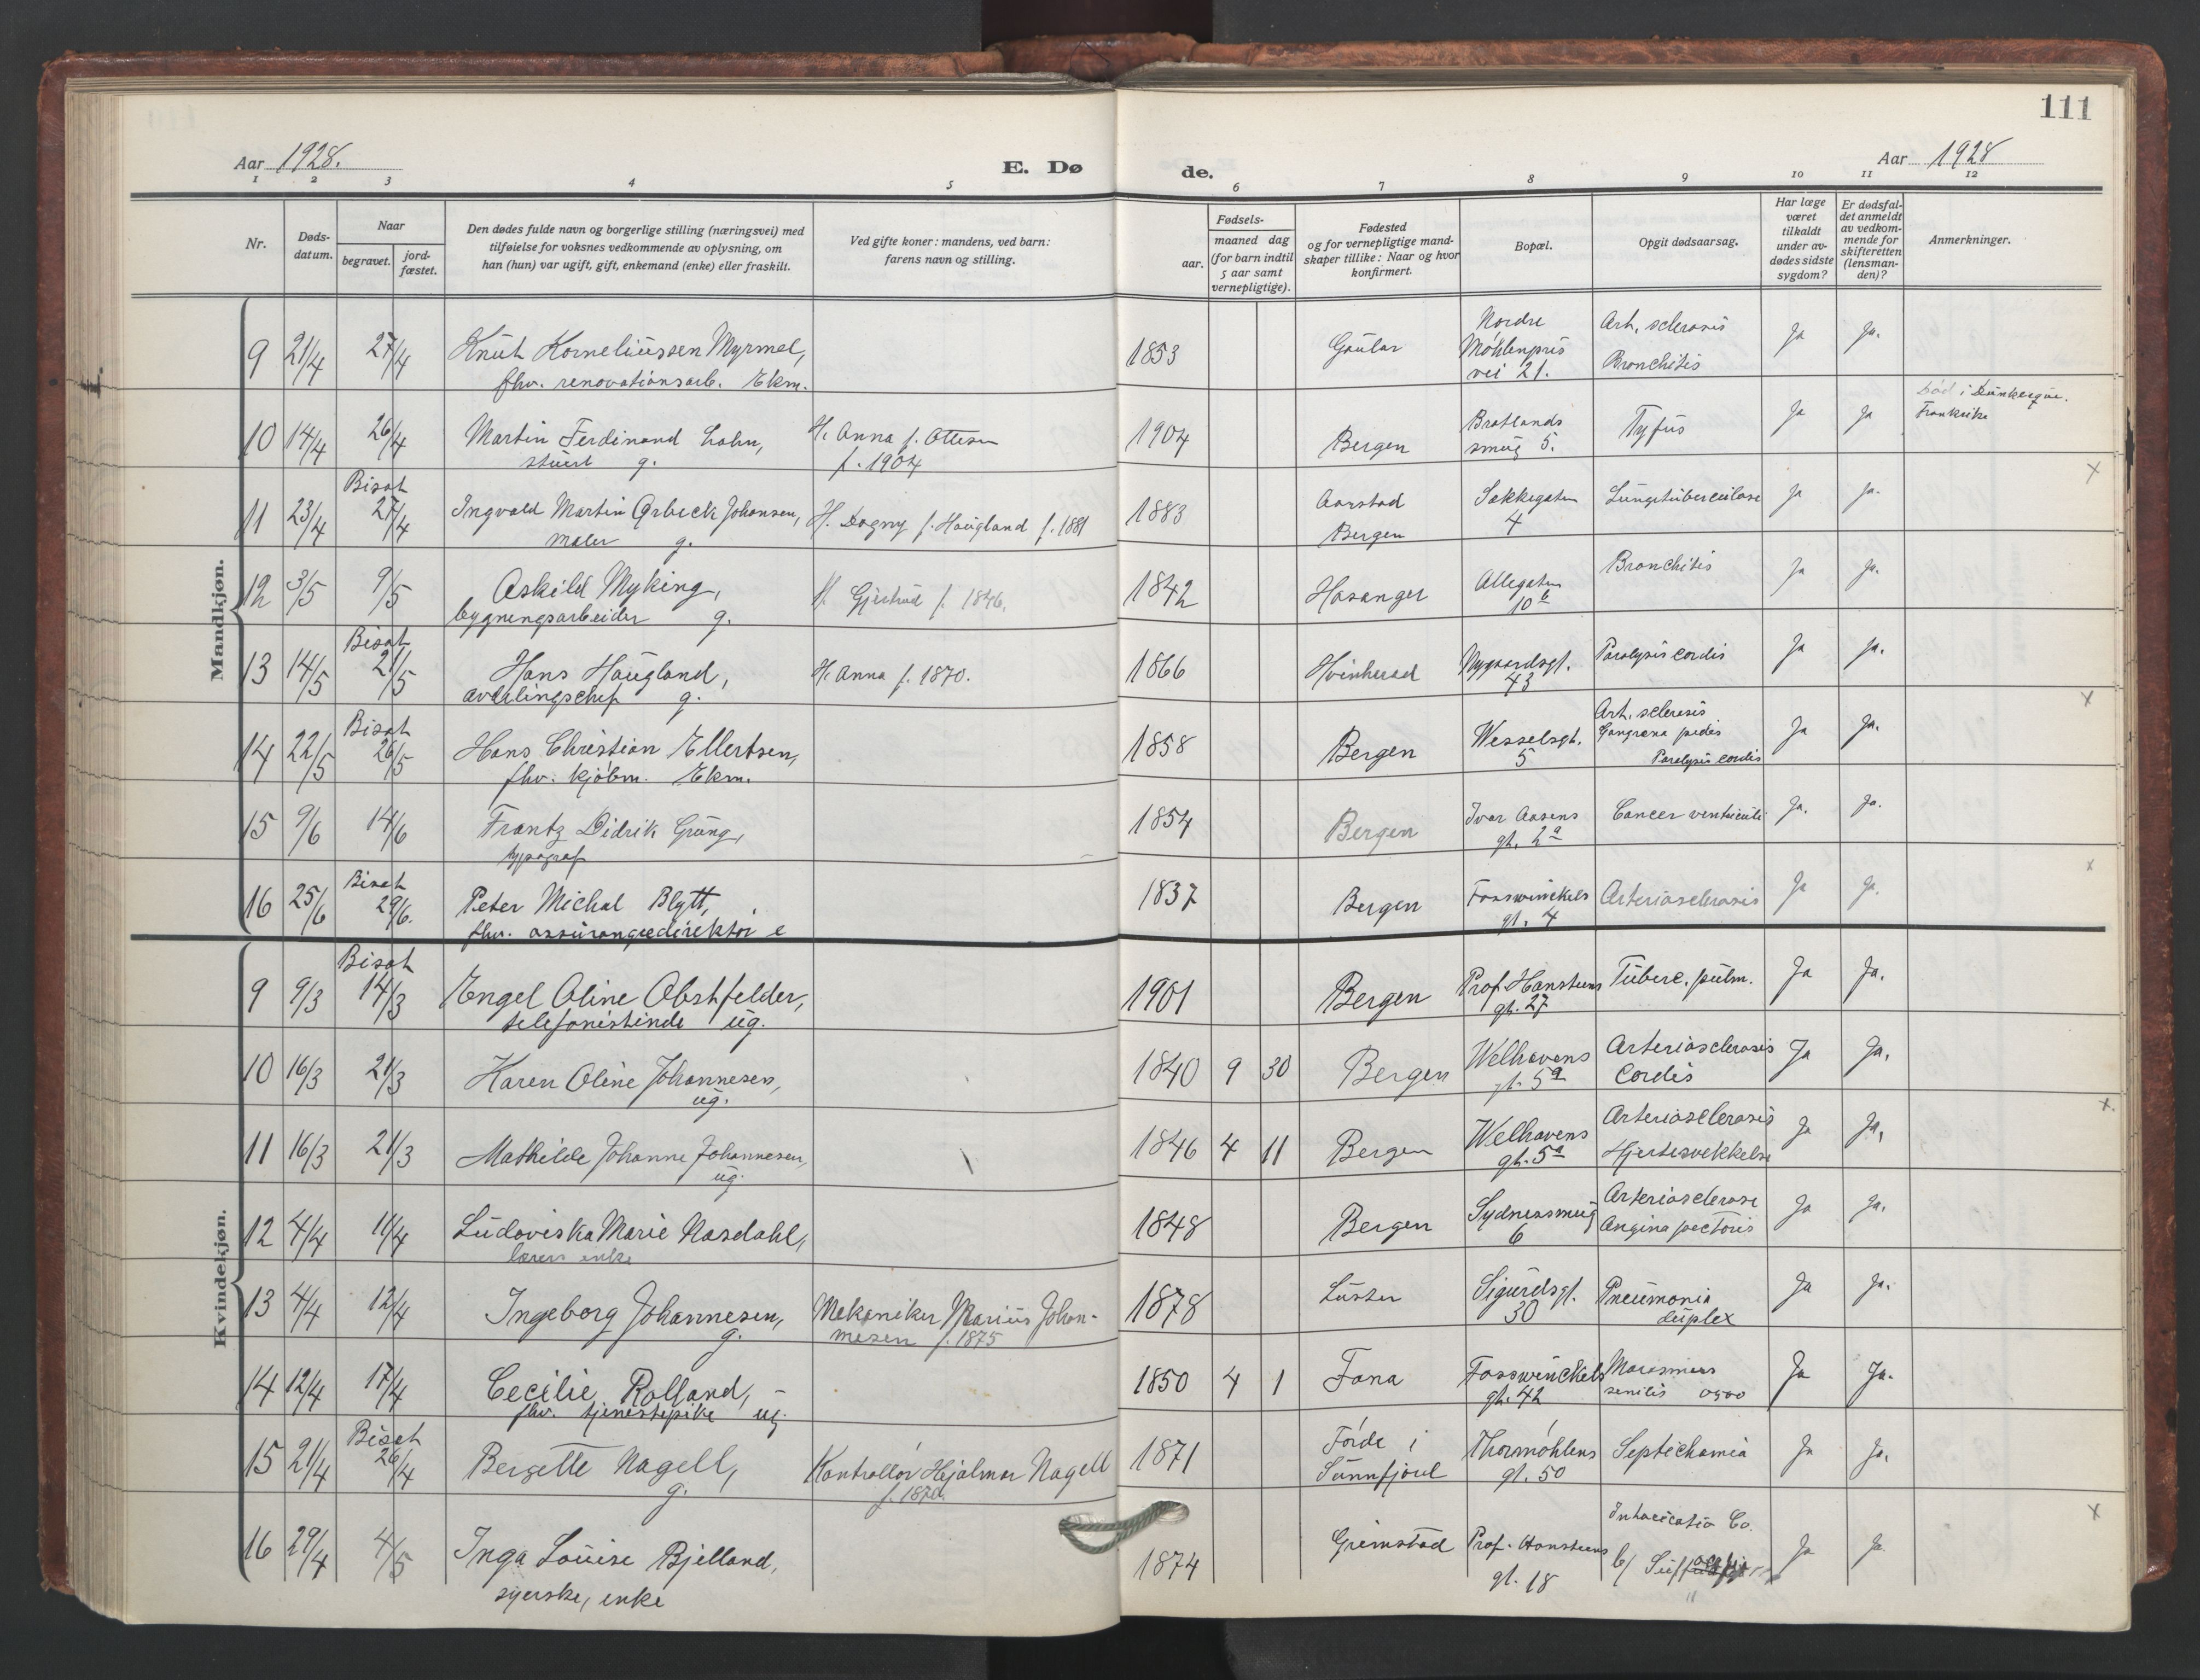 111
Aar 1928.
E. Dø
de.
Aar 1928
1 2 3 4 5 6 7 8 9 10 11 12
Nr.
Døds-
datum.
Naar
begravet.
jord-
fæstet.
Den dødes fulde navn og borgerlige stilling (næringsvei) med
tilføielse for voksnes vedkommende av oplysning, om
han (hun) var ugift, gift, enkemand (enke) eller fraskilt.
Ved gifte koner: mandens, ved barn:
farens navn og stilling.
Fødsels-
aar.
maaned dag
(for barn indtil
5 aar samt
vernepligtige).
Fødested
og for vernepligtige mand-
skaper tillike: Naar og hvor
konfirmert.
Bopæl.
Opgit dødsaarsag.
Har læge
været
tilkaldt
under av-
dødes sidste
sygdom?
Er dødsfal-
det anmeldt
av vedkom-
mende for
skifteretten
(lensman-
den)?
Anmerkninger.
Mandkjøn.
9 21/4 27/4 Knut Korneliussen Myrmel,
fhv. renovationsarb. Ekm.
1853 Gaular
Nordre
Møhlenpris
vei 21.
Art. sclerosis
Bronchitis
Ja Ja.
10 14/4 26/4 Martin Ferdinand Lohn,
stuert g.
H. Anna f. Ottesen
f. 1904
1904 Bergen
Bratlands
smug 5.
Tyfus
Ja Ja
Død i Dunkerque.
Frankrike
11 23/4 Bisat
27/4
Ingvald Martin Arbeck Johansen,
maler g.
H. Dagny f. Haugland f. 1881
1883 Aarstad
Bergen
Sekkegaten
4
Lungetuberculose
Ja Ja.
x
12 3/5 9/5 Askild Myking,
bygningsarbeider g.
H. Gjertrud f. 1846.
1842 Hosanger
Allegaten
10 b
Bronchitis
Ja Ja.
13 14/5 Bisat
21/5
Hans Haugland,
avdelingschef g.
H. Anna f. 1870.
1866 Kvinherad
Nygaardsgt.
43
Paralysis cordis
Ja Ja.
x
14 22/5 Bisat
26/5
Hans Christian Ellertsen,
fhv. kjøbm. Ekm.
1858 Bergen
Wesselsgt.
5
Art. sclerosis
Gangræna pedis
Paralysis cordis
Ja Ja.
15 9/6 14/6 Frantz Didrik Grung,
typograf
1854 Bergen
Ivar Aasens
gt. 2a
Cancer ventriculi
Ja. Ja.
x
16 25/6 Bisat
29/6.
Peter Michal Blytt,
fhv. assurangsedirektør e
1837 Bergen
Fosswinckels
gt. 4
Arteriosclerosis
Ja Ja.
Kvindekjøn.
9 9/3 Bisat
14/3
Engel Oline Obstfelder,
telefonistinde ug.
1901 Bergen
Prof. Hansteens
gt. 27
Tuberc. pulm.
Ja Ja.
10 16/3 21/3 Karen Oline Johannesen,
ug.
1840 9 30 Bergen
Welhavens
gt. 5a
Arteriosclerosis
Cordis
Ja Ja.
x.
11 16/3 21/3 Mathilde Johanne Johannesen,
ug.
1846 4 11 Bergen
Welhavens
gt. 5a
Arteriosclerosis
Hjertesvekkelse
Ja Ja,
12 4/4 11/4 Ludoviska Marie Nasdahl,
lærers enke
1848 Bergen
Sydnessmug
6
Arteriosclerose
Angina pectoris
Ja Ja.
13 4/4 12/4 Ingeborg Johannesen,
g.
Mekaniker Marius Johan-
nesen f. 1875
1878 Luster
Sigurdsgt.
30
Pneumonia
duplex
Ja Ja.
14 12/4 17/4 Cecilie Rolland,
fhv. tjenestepike ug.
1850 4 1 Fana
Fosswinckels
gt. 42
Marasmus
senilis
Ja Ja.
15 21/4 Bisat
26/4
Bergette Nagell,
g.
Kontrollør Hjalmar Nagell
f. 1870.
1871 Førde i
Sunnfjord
Thormøhlens
gt. 50
Septichæmia
Ja Ja.
x
16 29/4 4/5 Inga Louise Bjelland,
syerske, enke
1874 Grimstad
Prof. Hansteens
gt. 18
Intoxicatio Co.
Ja Ja